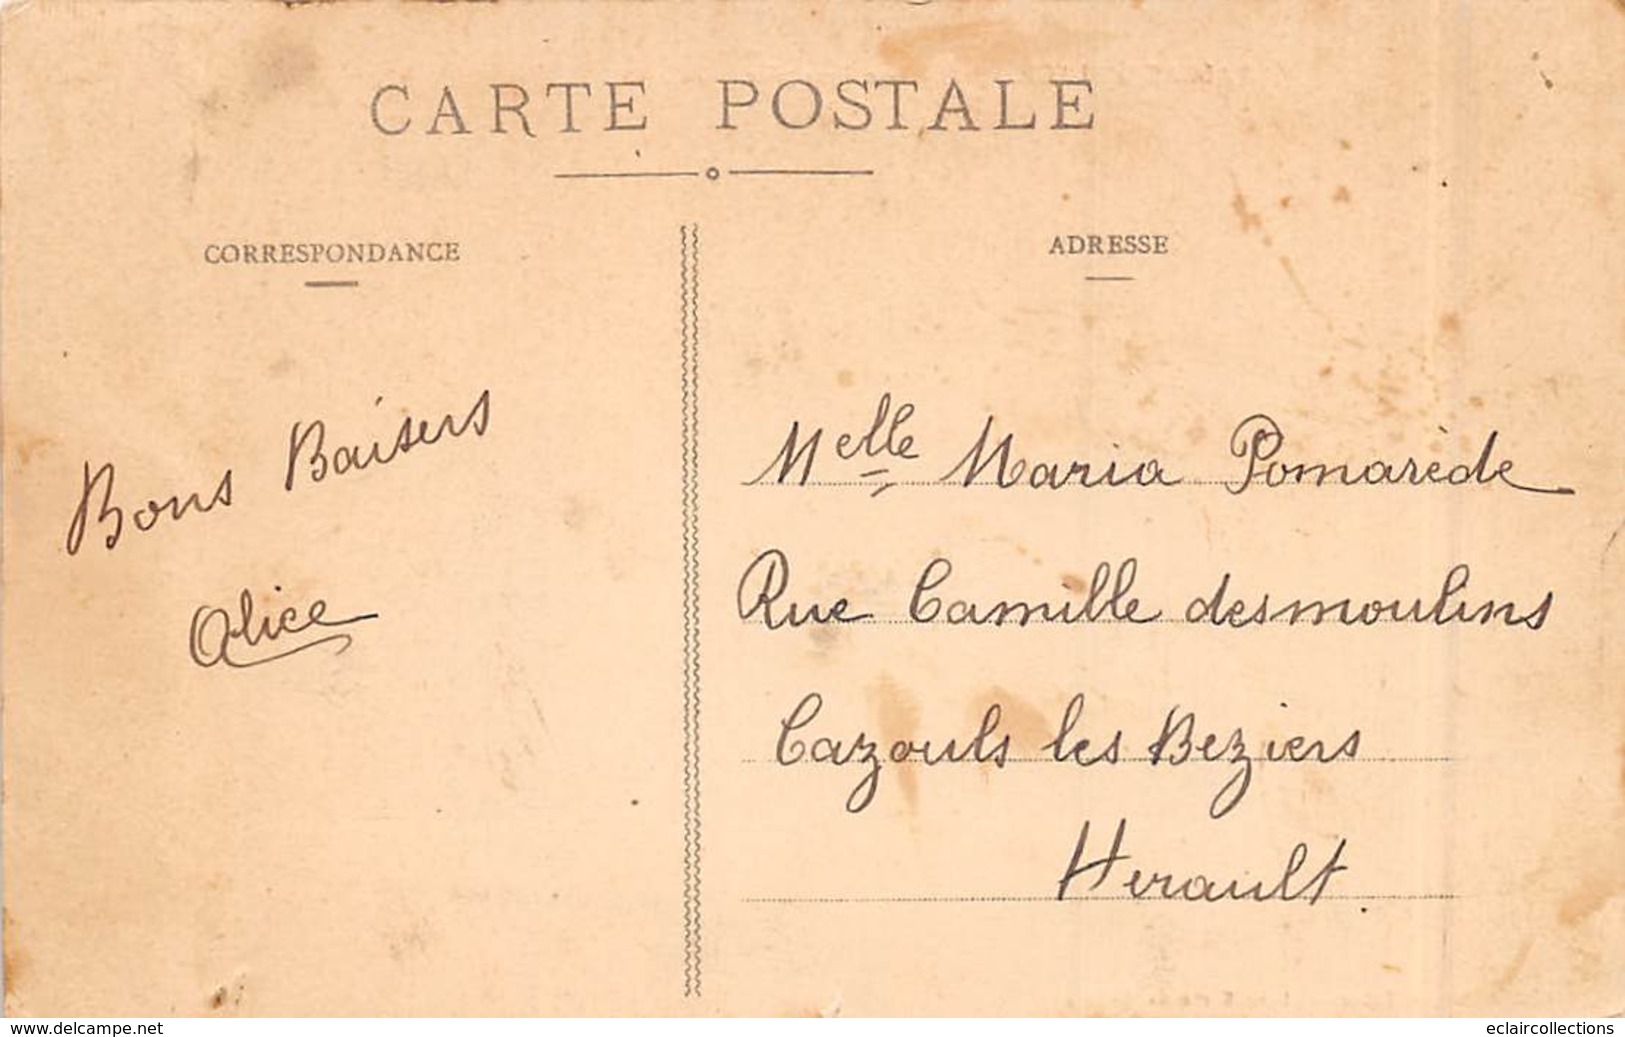 CARTE POSTALE
CORRESPONDANCE
ADRESSE
Bons Baisers
Alice
Melle Maria Pomarède
Rue Camille desmoulins
Cazouls les Beziers
Herault.
www.delcampe.net
eclaircollections